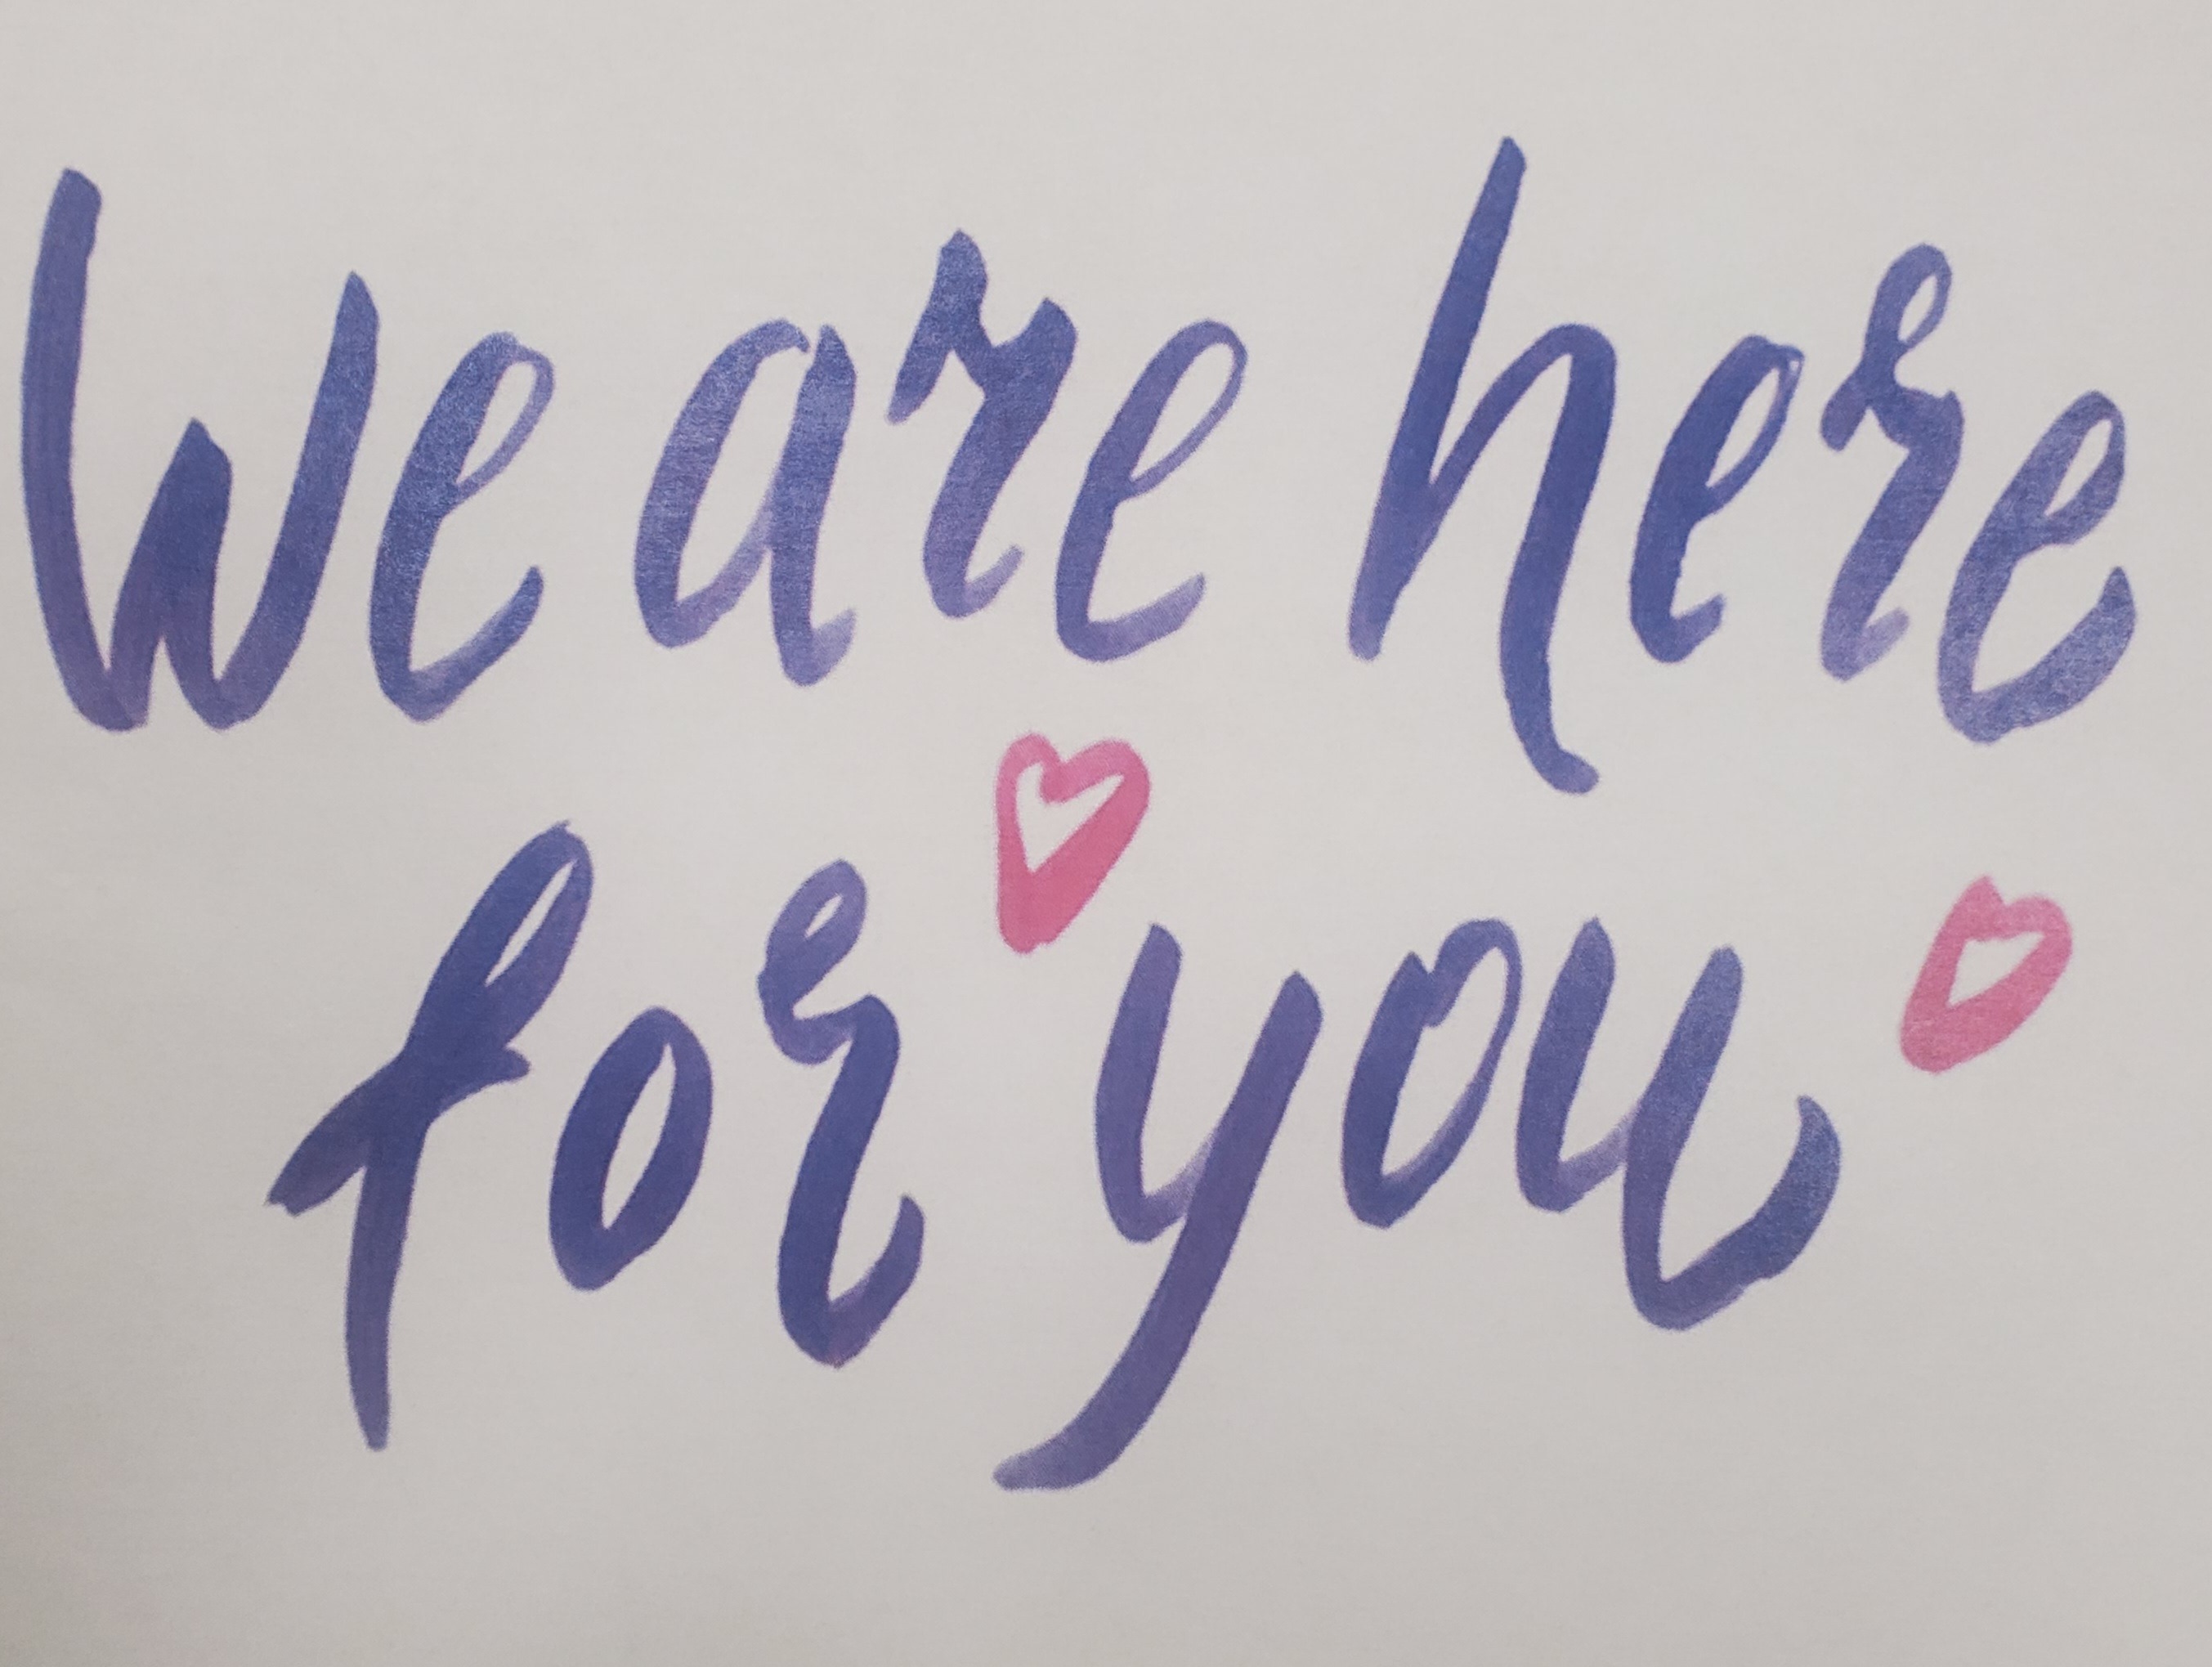 We are here
for you